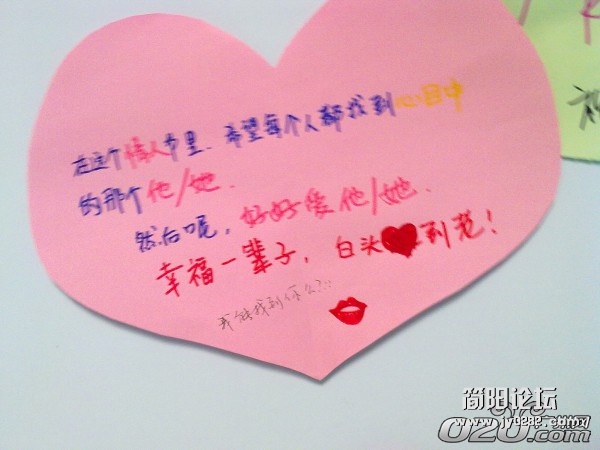 在这个情人节里、希望每个人都找到心目中
的那个他/她.
然后呢，好好爱他/她.
幸福一辈子，白头到老！
我能找到你么?
简阳论坛
www.jy0282.com
020
.com